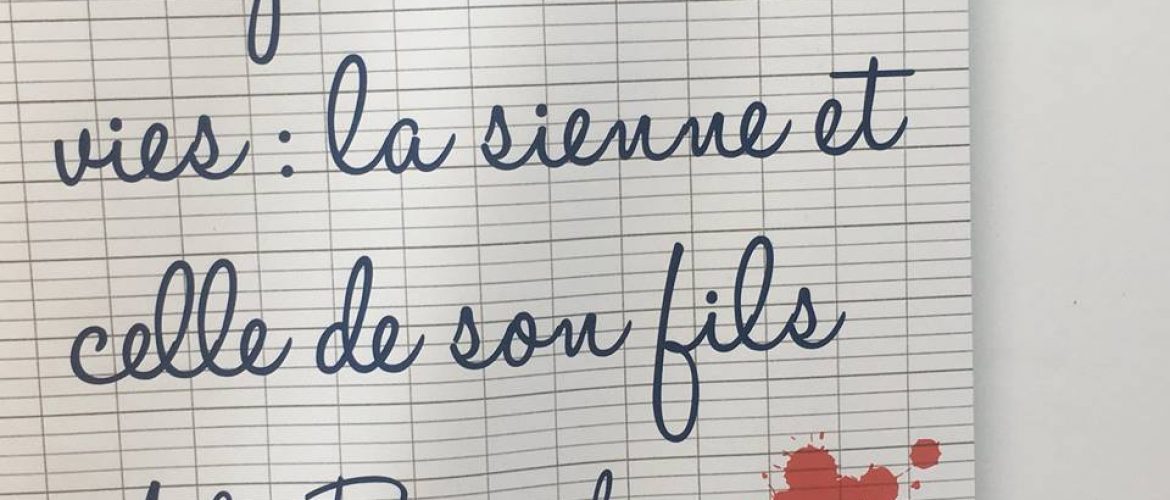 vies : la sienne et
celle de son fils